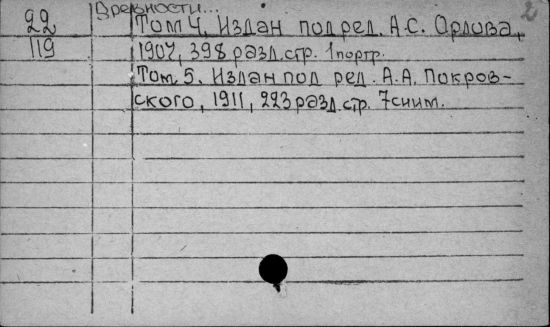 Древности...
2
22
119
Том 4. Издан под ред. А.С. Орлова,
1907, 398 разд. стр. 1 портр.
Том 5. Издан под ред. А.А. Покров-
ского, 1911, 223 разд. стр. 7 сним.